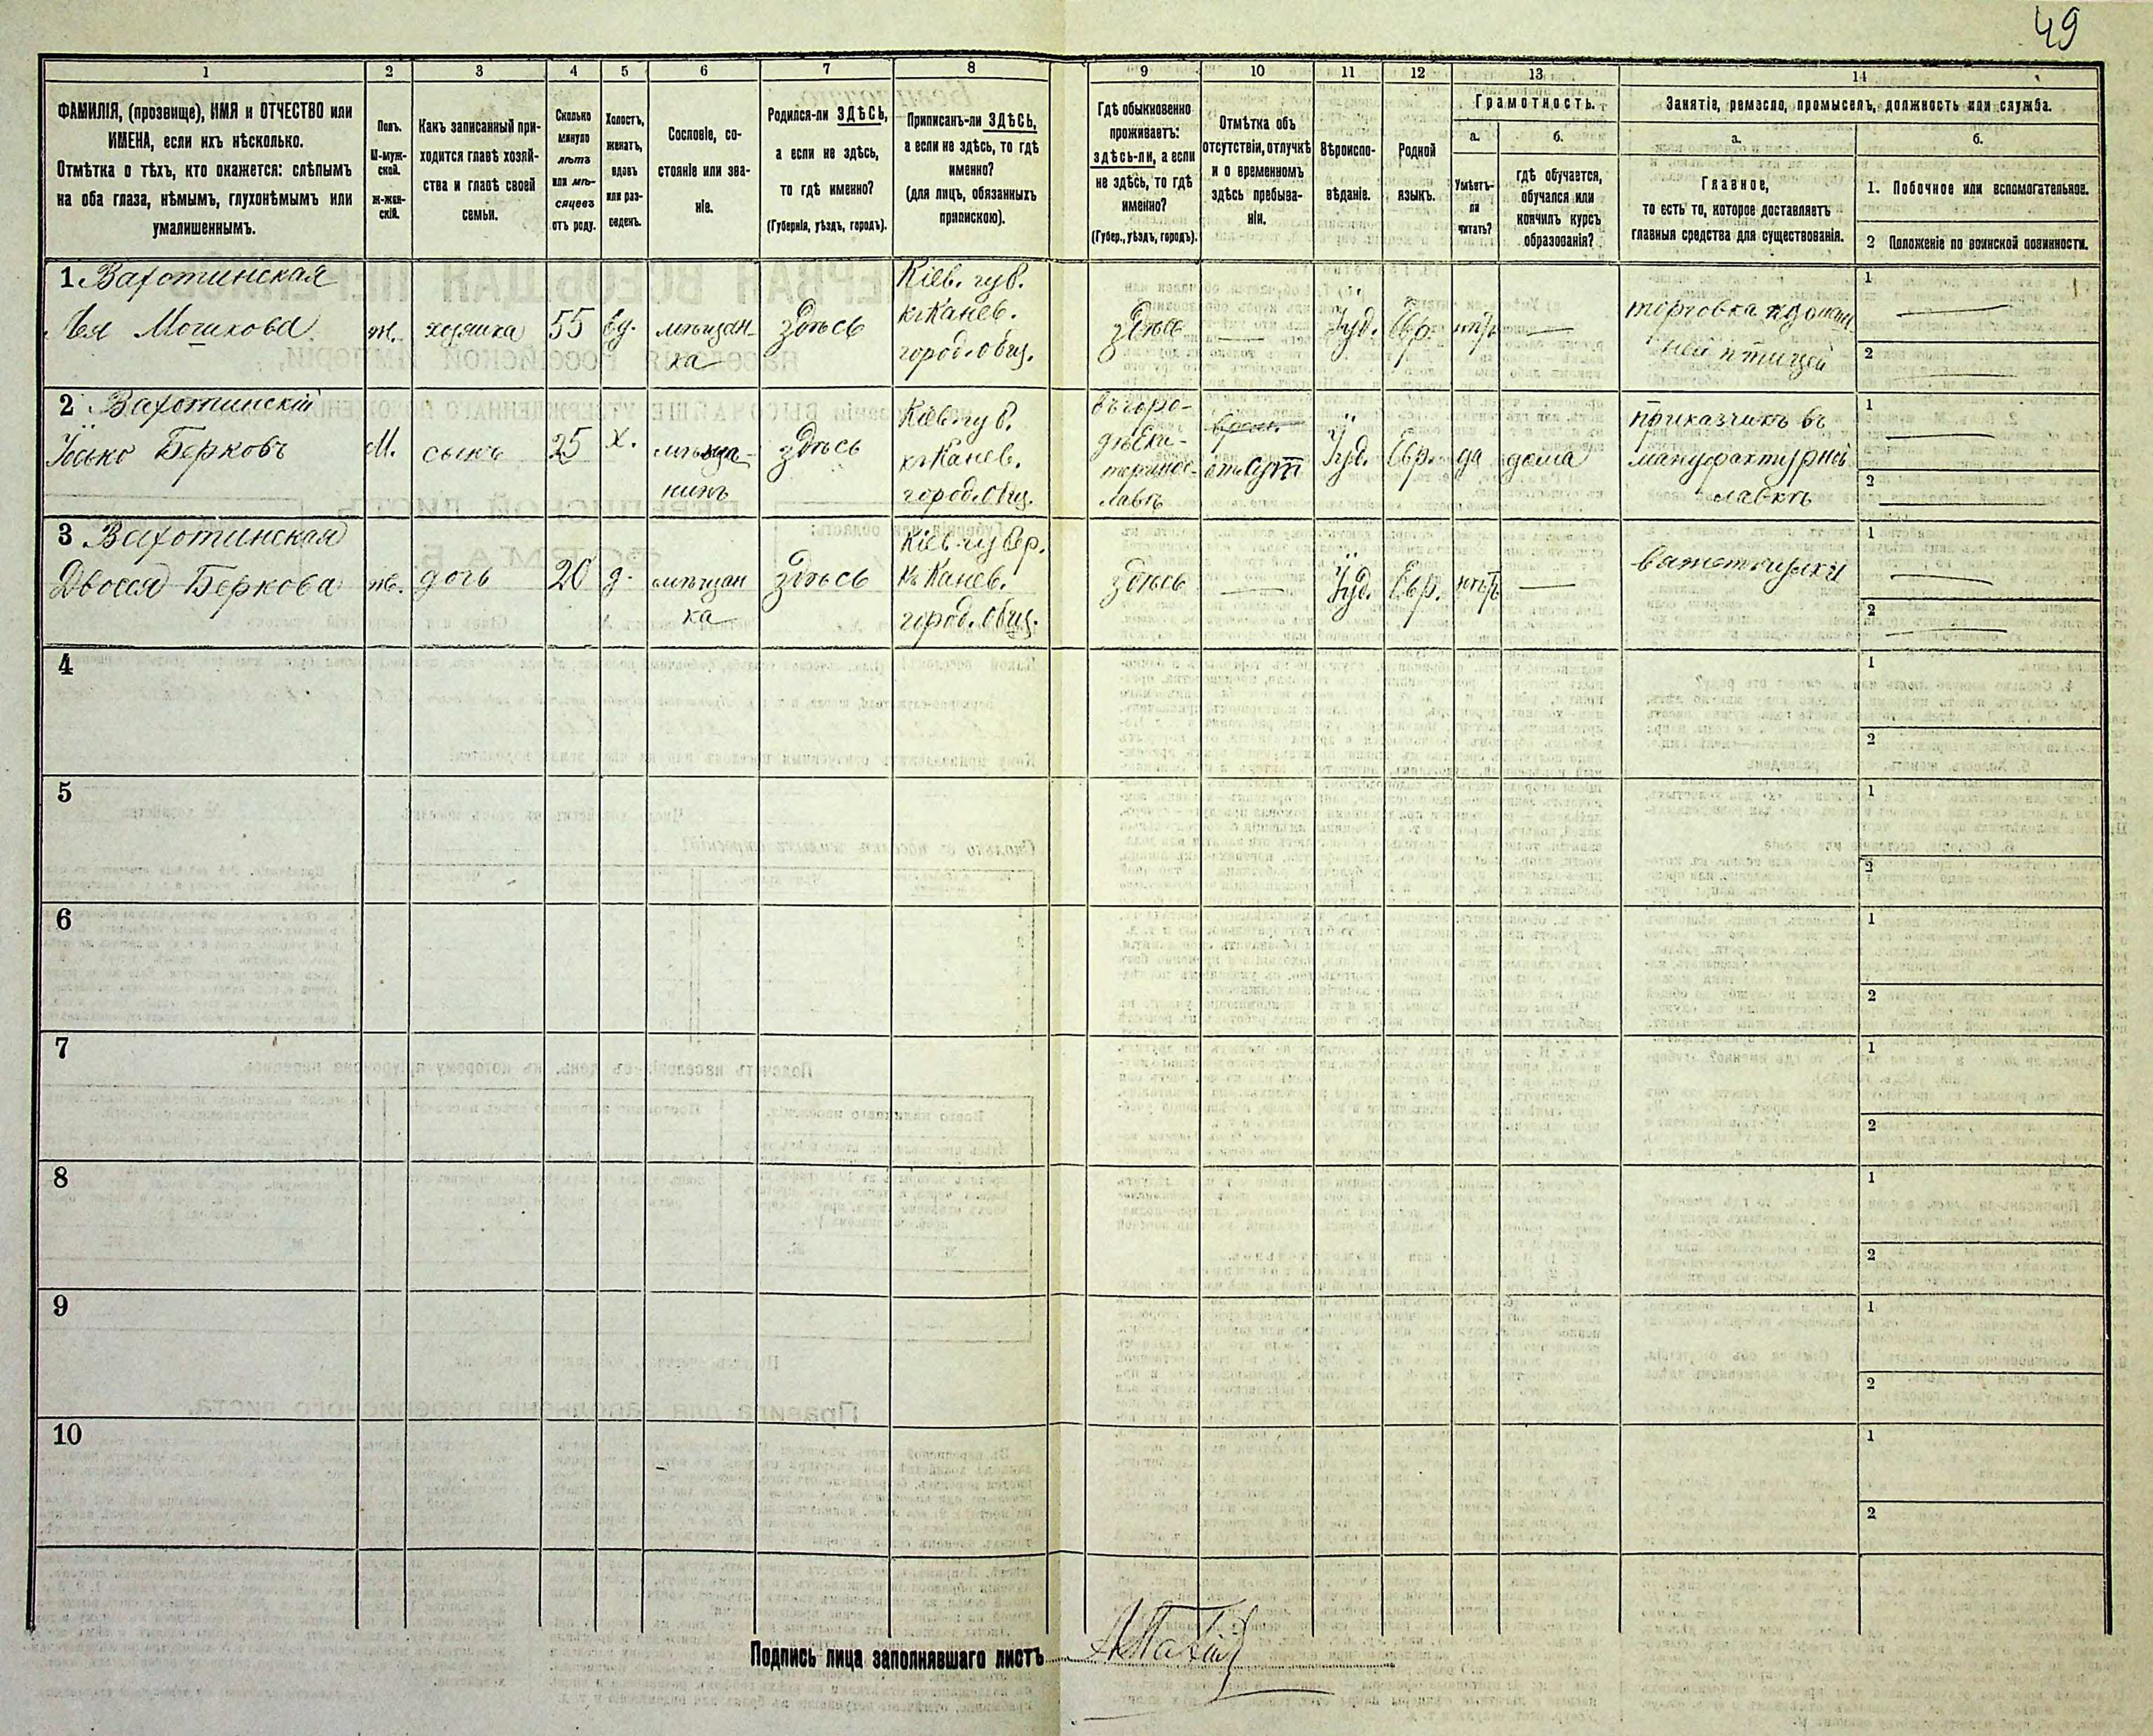 49
1 2 3 4 5 6 7 8 9 10 11 12 13 14
ФАМИЛІЯ, (прозвище), ИМЯ и ОТЧЕСТВО или
ИМЕНА, если ихъ нѣсколько.
Отмѣтка о тѣхъ, кто окажется: слѣпымъ
на оба глаза, нѣмымъ, глухонѣмымъ или
умалишеннымъ.
Полъ.
М-муж-
ской.
ж-жен-
скій.
Какъ записанный при-
ходится главѣ хозяй-
ства и главѣ своей
семьи.
Сколько
минуло
лѣтъ
или мѣ-
сяцевъ
отъ роду.
Холостъ,
женатъ,
вдовъ
или раз-
веденъ.
Сословіе, со-
стояніе или зва-
ніе.
Родился-ли ЗДѢСЬ,
а если не здѣсь,
то гдѣ именно?
(Губернія, уѣздъ, городъ).
Приписанъ-ли ЗДѢСЬ,
а если не здѣсь, то гдѣ
именно?
(для лицъ, обязанныхъ
припискою).
Гдѣ обыкновенно
проживаетъ:
здѣсь-ли, а если
не здѣсь, то гдѣ
именно?
(Губер., уѣздъ, городъ).
Отмѣтка объ
отсутствіи, отлучкѣ
и о временномъ
здѣсь пребыва-
ніи.
Вѣроиспо-
вѣданіе.
Родной
языкъ.
Грамотность.
а.
Умѣетъ-
ли
читать?
б.
гдѣ обучается,
обучался или
кончилъ курсъ
образованія?
Занятіе, ремесло, промыселъ, должность или служба.
а.
Главное,
то есть то, которое доставляетъ
главныя средства для существованія.
б.
1. Побочное или вспомогательное.
2 Положеніе по воинской повинности.
1
Лея Мошкова
ж.
хозяйка
55
вд.
мѣщан-
ка
здѣсь
Кіев. губ.
къ Канев.
город. общ.
здѣсь
—
Іуд.
Евр.
нѣтъ
—
торговка домаш
ней птицей
1 —
2 —
2
Іосько Берковъ
М.
сынъ
25
х.
мѣща-
нинъ
здѣсь
Кіев. губ.
къ Канев.
город. общ.
въ горо-
дѣ Ека-
теринос-
лавѣ
отсут
Іуд.
Евр.
да
дома
приказчикъ въ
мануфактурной
лавкѣ
1 —
2 —
3
Двосся Беркова
ж.
дочь
20
д.
мѣщан
ка
здѣсь
Кіев. губер.
къ Канев.
город. общ.
здѣсь
—
Іуд.
Евр.
нѣтъ
—
1 —
2 —
4
1
2
5
1
2
6
1
2
7
1
2
8
1
2
9
1
2
10
1
2
Подпись лица заполнявшаго листъ